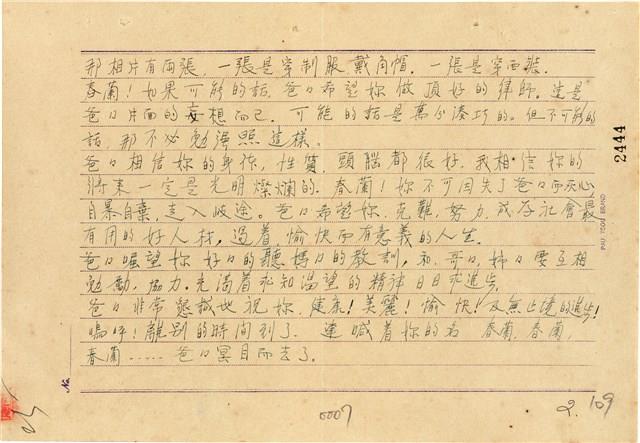 那相片有兩張，一張是穿制服戴角帽．一張是穿西裝．
春蘭！如果可能的話，爸々希望妳做頂好的律師。這是
爸々片面的妄想而已．可能的話是萬分湊巧的。但不可能的
話，那不必勉強照這樣。
爸々相信妳的身体，性質，頭腦都很好．我相信妳的
將來一定是光明燦爛的．春蘭！妳不可因失了爸々而灰心
自暴自棄，走入岐途。爸々希望妳，克難，努力，成存社會最
有用的好人材，過着愉快而有意義的人生．
爸々囑望妳好々的聽媽々的教訓，和，哥々，姊々要互相
勉勵，協力．充滿着求知渴望的精神日日求進步．
爸々非常懇誠地祝妳，健康！美麗！愉快！及無止境的進步！
嗚呼！離別的時間到了．連喊着妳的名 春蘭，春蘭，
春蘭……爸々冥目而去了．
2444
No.
0007
2. 109